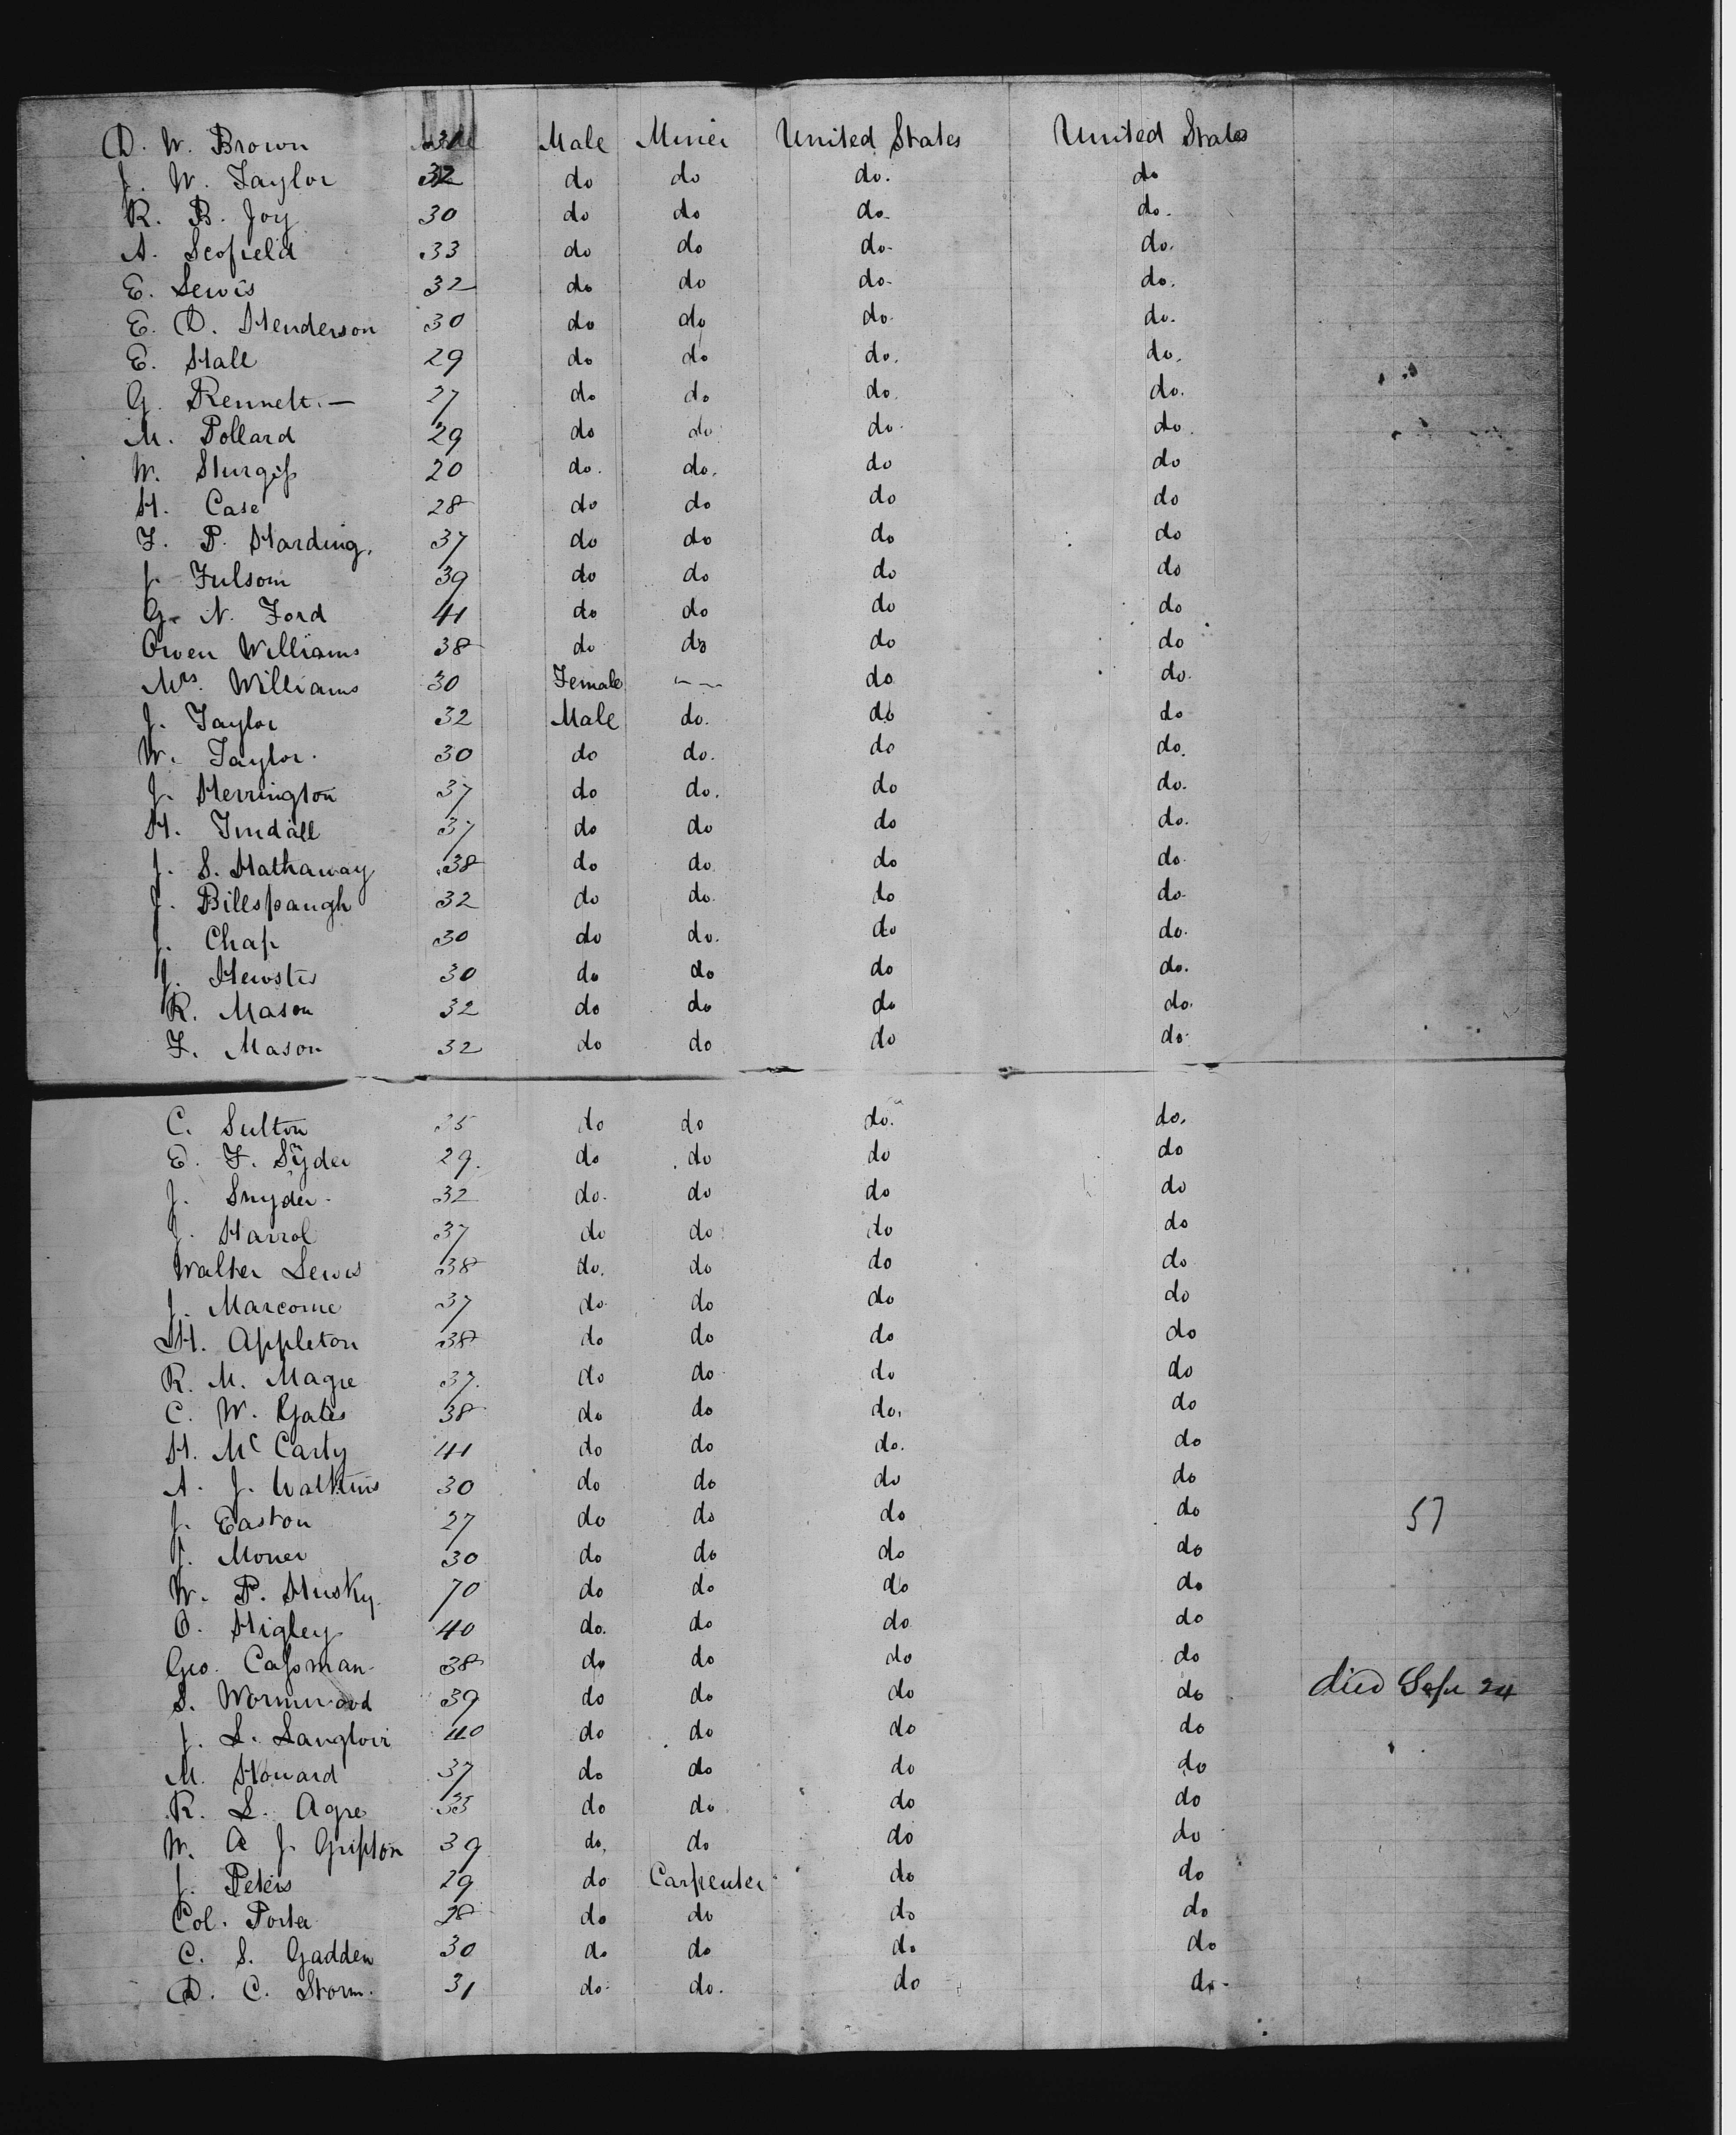 D. W. Brown 30 Male Miner United States United States
J. W. Taylor 32 do do do. do
R. B. Joy 30 do do do. do.
A. Scofield 33 do do do. do.
E. Lewis 32 do do do. do.
E. D. Henderson 30 do do do. do.
E. Hall 29 do do do. do.
G. Rennelt. — 27 do do do. do.
M. Pollard 29 do do do. do.
W. Sturgiss 20 do. do. do do
H. Case 28 do do do do
F. P. Harding. 37 do do do do
J. Fulsom 39 do do do do
G. N. Ford 41 do do do do
Owen Williams 38 do do do do
Mrs. Williams 30 Female — — do do.
J. Taylor 32 Male do. do do
W. Taylor. 30 do do. do do.
J. Herrington 37 do do. do do.
H. Tindall 37 do do do do.
J. S. Hathaway 38 do do. do do.
J. Billspaugh 32 do do. do do.
J. Chap 30 do do. do do.
J. Hewstis 30 do do do do.
R. Mason 32 do do do do.
F. Mason 32 do do do do.
C. Sulton 35 do do do. do.
E. F. Syder 29. do do do do
J. Snyder. 32 do. do do do
J. Harrol 37 do do do do
Walter Lewis 38 do. do do do
J. Marcome 37 do. do do do
H. Appleton 38 do do do do
R. M. Magee 37. do do do do
C. W. Gates 38 do do do. do
H. McCarty 41 do do do. do
A. J. Watkins 30 do do do do
J. Easton 27 do do do do 57
J. Moner 30 do do do do
W. P. Husky. 70 do do do do
O. Higley 40 do. do do do
Geo. Cassman. 38 do do do do
S. Wormwood 39 do do do do died Sepr 24
J. L. Langlois 40 do do do do
M. Howard 37 do do do do
R. L. Agre 33 do do do do
W. A J. Gripton 39 do. do do do
J. Peters 29 do Carpenter do do
Col. Porter 38 do do do do
C. S. Gadden 30 do do do do
D. C. Storm. 31 do. do. do do.